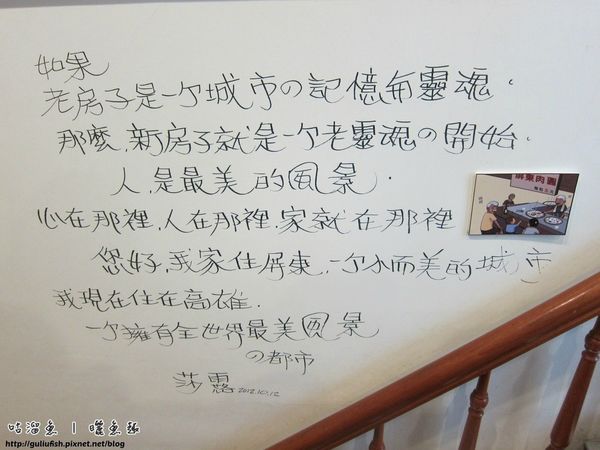 如果
老房子是一个城市の記憶和靈魂.
那麼,新房子就是一个老靈魂の開始.
人,是最美的風景.
心在那裡,人在那裡,家就在那裡
您好,我家住屏東,一个小而美的城市
我現在住在高雄.
一个擁有全世界最美風景
の都市
莎露 2012.10.12
屏東肉圓
咕溜魚 | 曬魚趣
http://guliufish.pixnet.net/blog